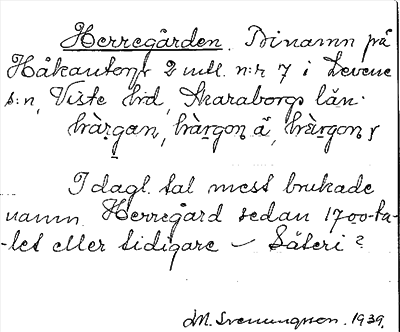 Herregården. Binamn på
Håkantorp 2 mtl. n:r 7 i Levene
s:n, Viste hd, Skaraborgs län.
hæ̀r̥gan, hæ̀r̥gon å, hæ̀r̥gon ɟ
I dagl. tal mest brukade
namn. Herregård sedan 1700-ta-
-let eller tidigare – Säteri?
M. Svenungsson. 1939.